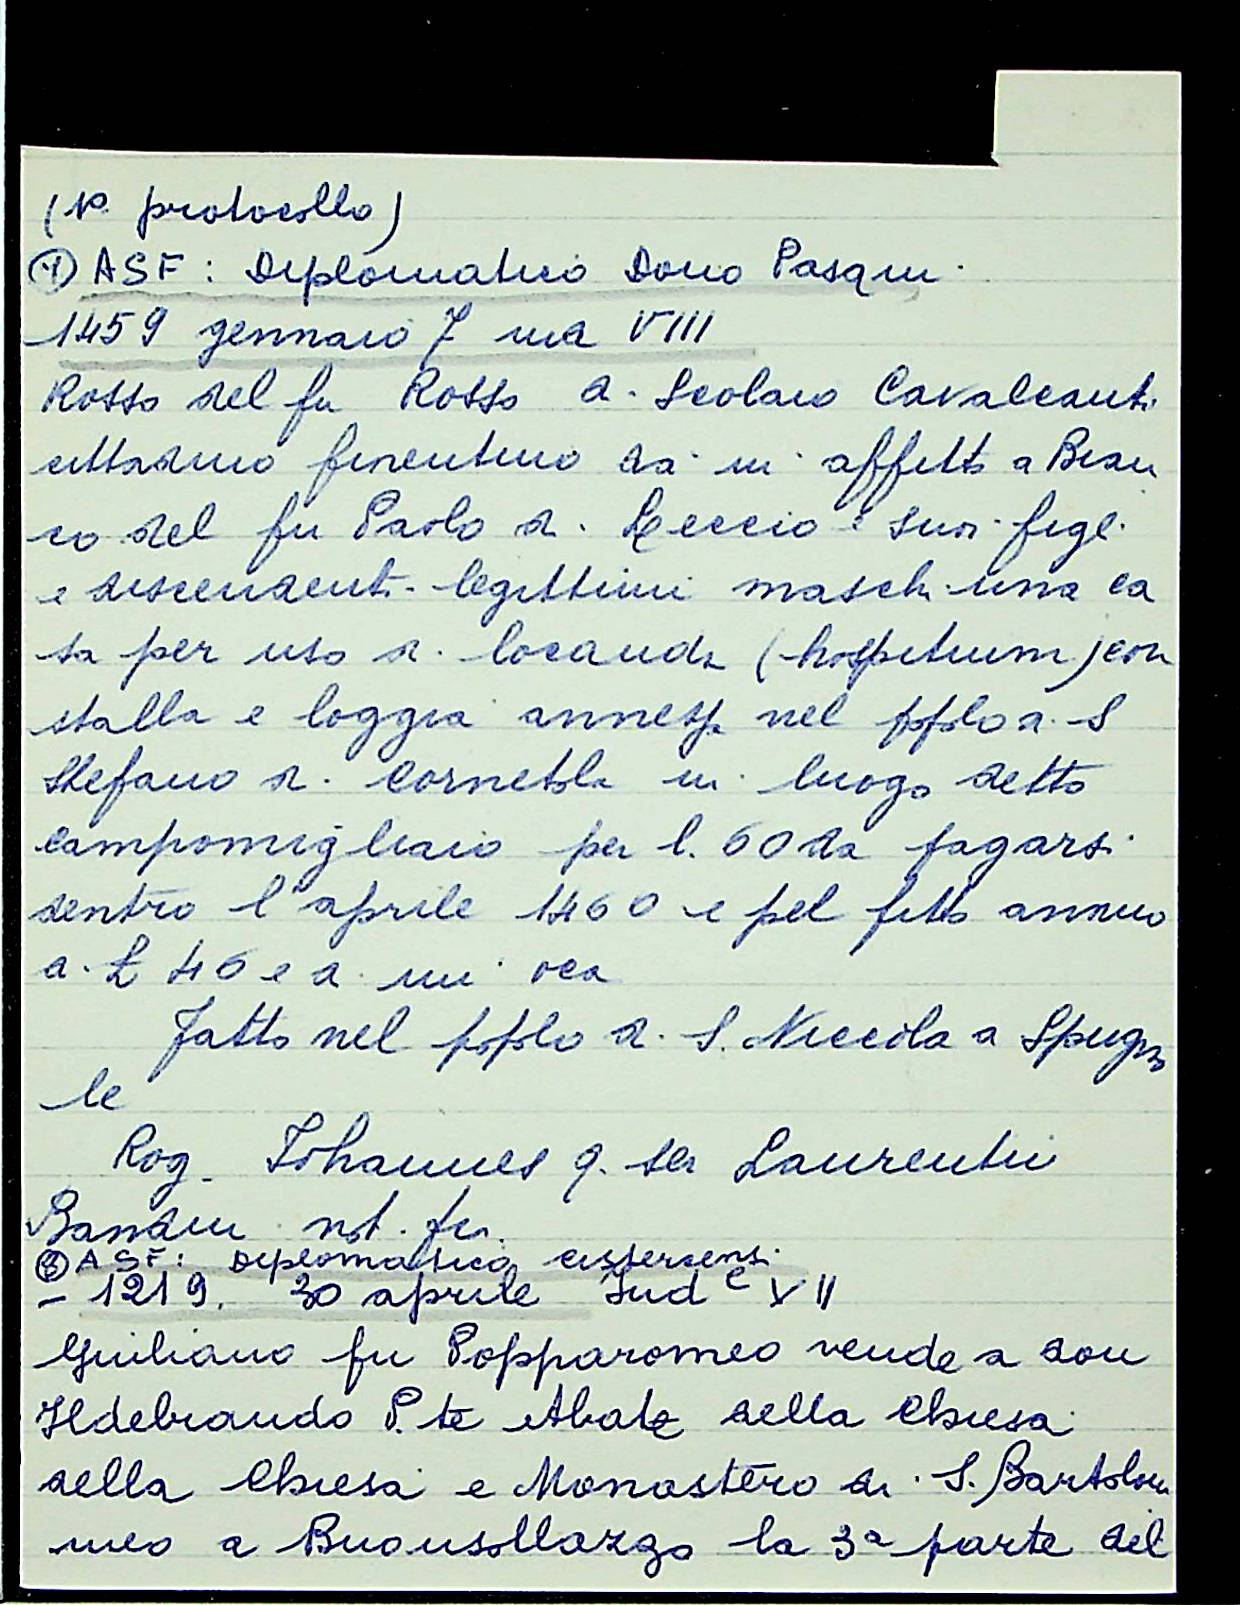 (N. protocollo)
① ASF: Diplomatico Dono Pasqui
1459 gennaio 7 ind VIII
Rosso del fu Rosso di Scolaio Cavalcanti
cittadino fiorentino dà in affitto a Bian
co del fu Paolo di Leccio e suoi figli
e discendenti legittimi maschi una ca
sa per uso di locanda (hospitium) con
stalla e loggia annessa nel popolo di S
Stefano di Cornetole in luogo detto
Campomigliaio per l. 60 da pagarsi
dentro l'aprile 1460 e pel fitto annuo
di £ 46 e di un oca
Fatto nel popolo di S. Niccola a Spugno
le
Rog. Iohannes q. ser Laurentii
Bandini not. fio.
③ ASF: Diplomatico cistercensi
- 1219. 30 aprile Ind^e VII
Giuliano fu Popparomeo vende a don
Ildebrando P.te Abate della Chiesa
della Chiesa e Monastero di S. Bartolom
meo a Buonsollazzo la 3a parte del